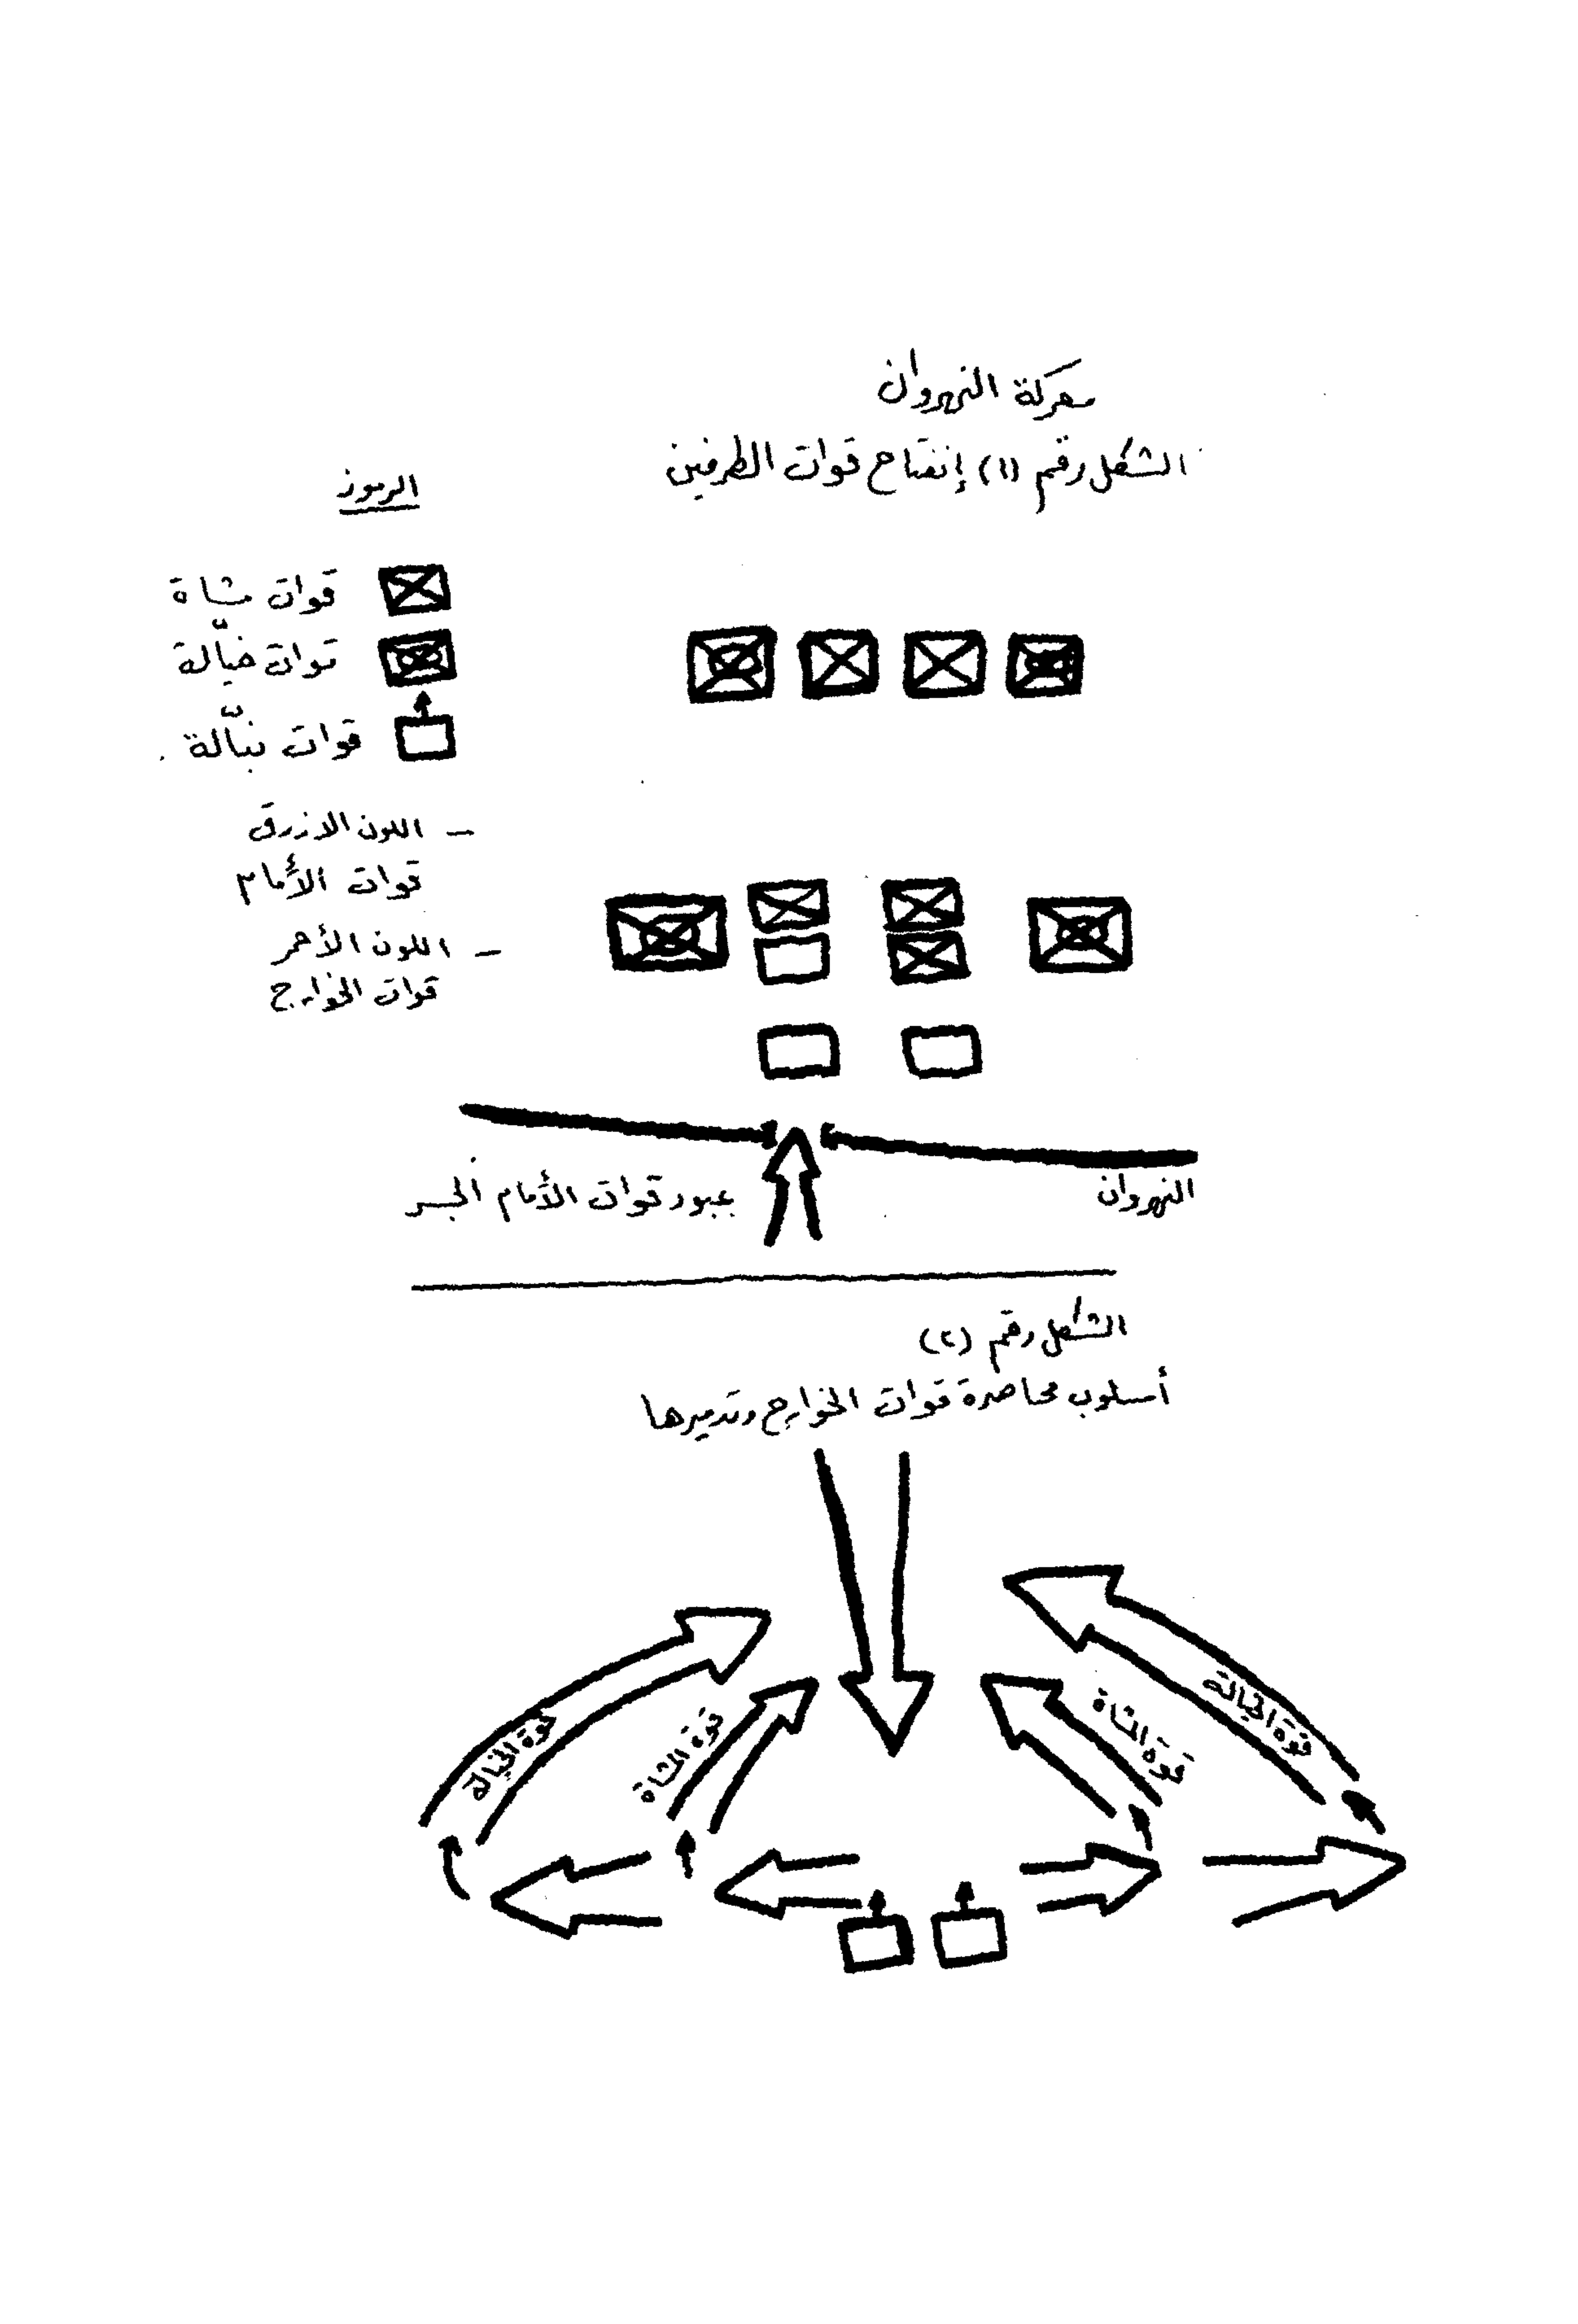 معركة النهروان
الشكل رقم (١) إنفتاح قوات الطرفين
الرموز
قوات مشاة
قوات خيّالة
قوات نبّالة
- اللون الازرق
قوات الأمام
- اللون الأحمر
قوات الخوارج
النهروان
عبور قوات الأمام الجسر
الشكل رقم (٢)
أسلوب محاصرة قوات الخوارج وتدميرها
قوة الخيالة
قوة المشاة
قوة المشاة
قوة الخيالة